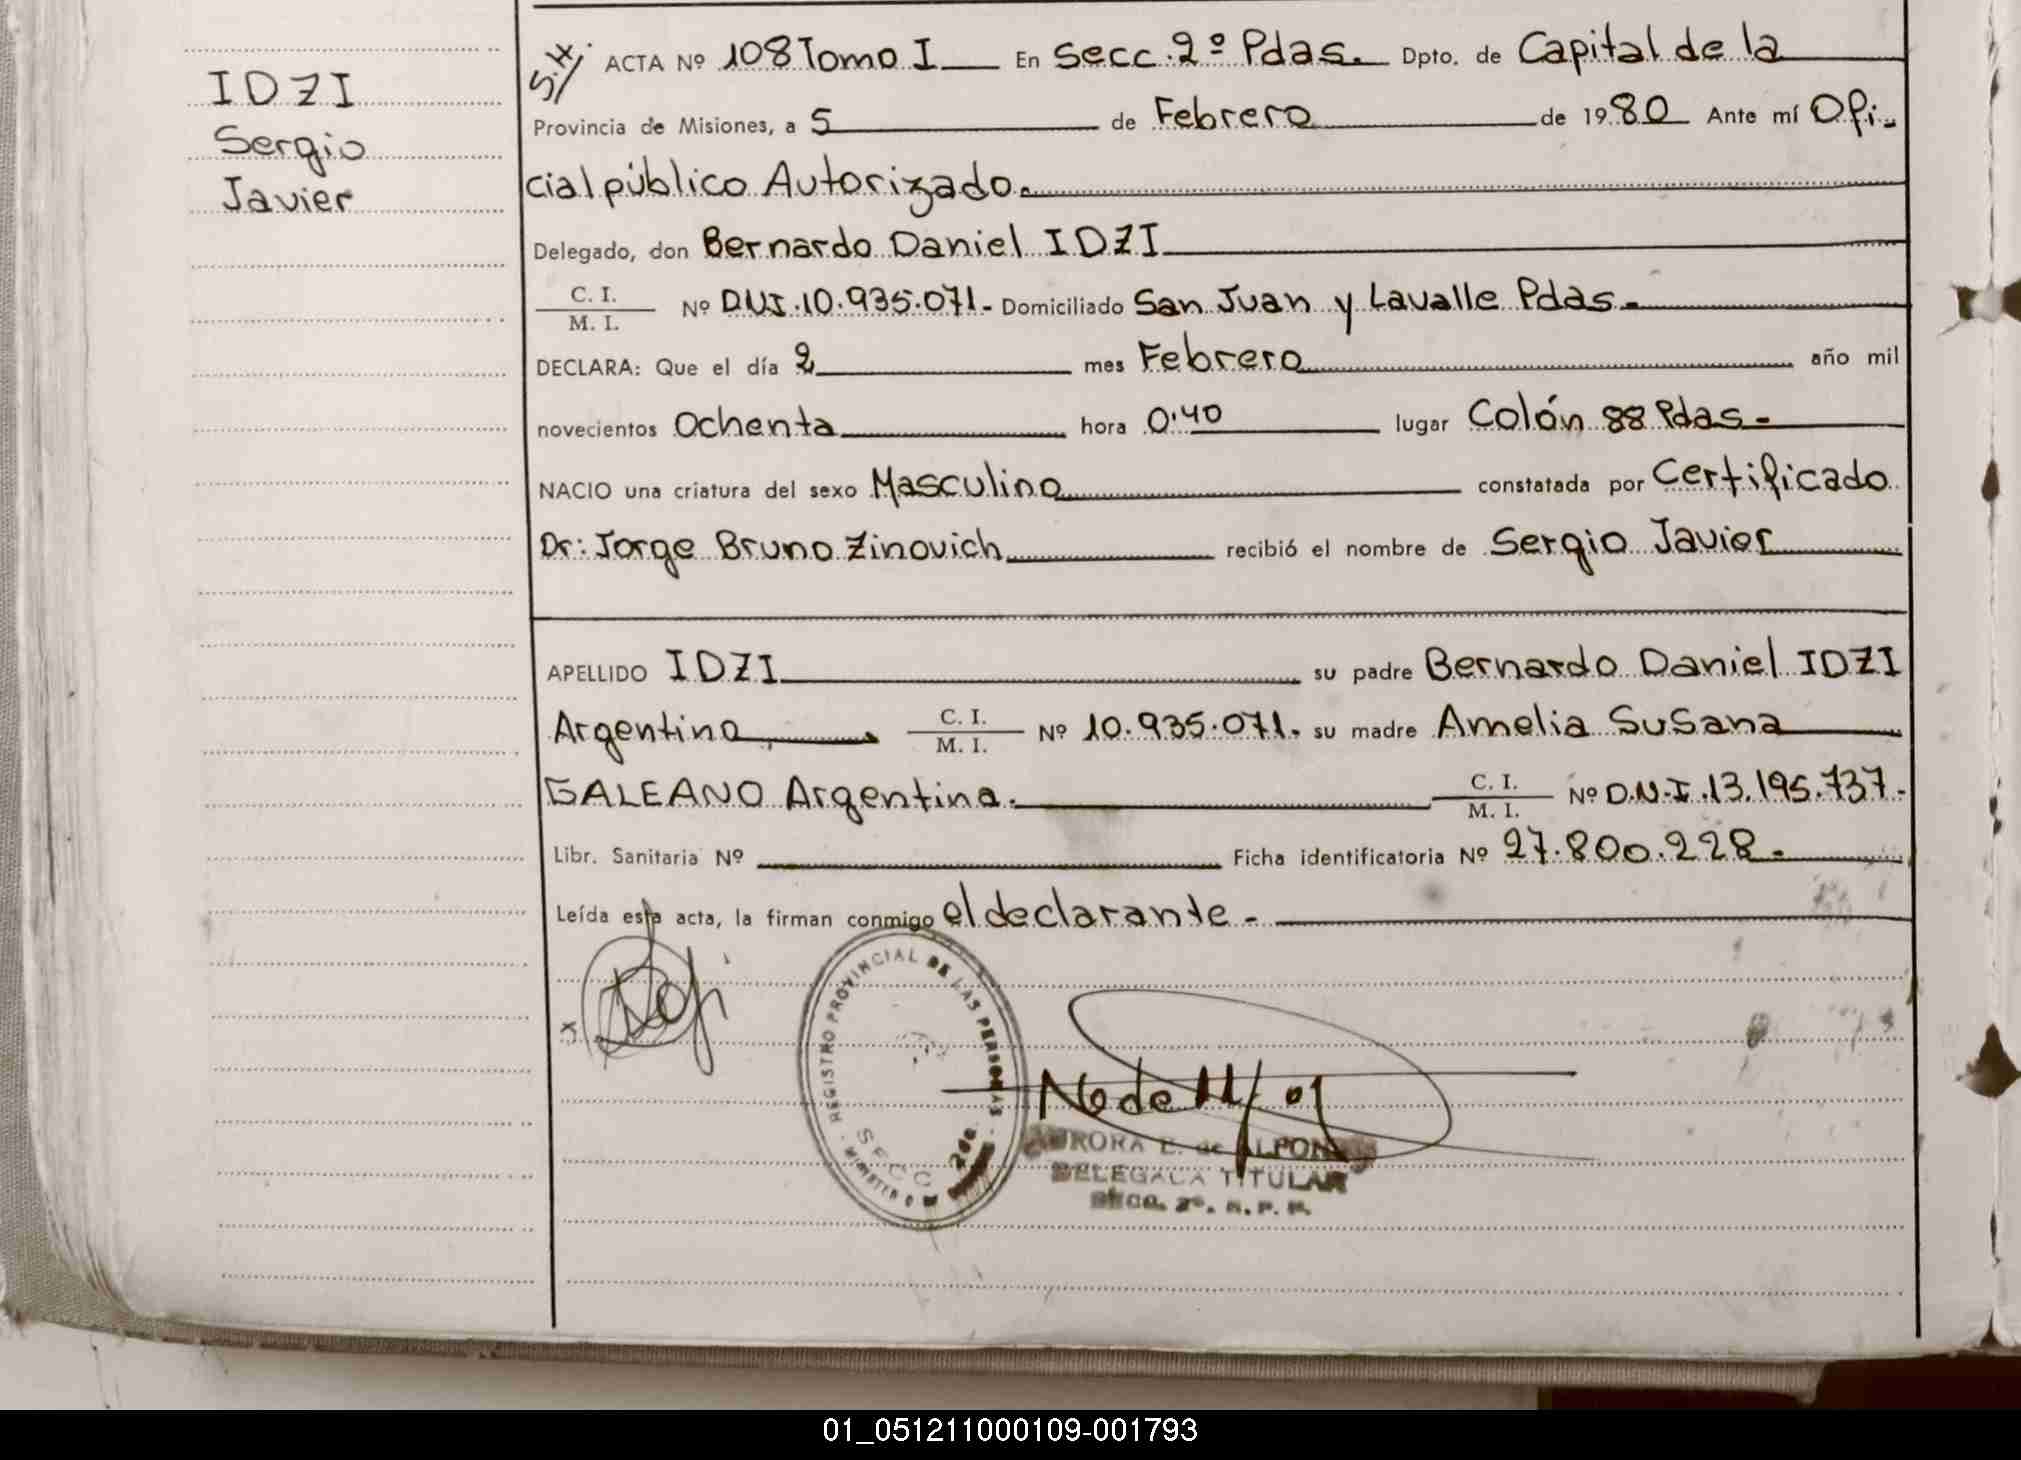 IDZI
Sergio
Javier
S.H. ACTA Nº 108 Tomo I En Secc. 2º Pdas. Dpto. de Capital de la
Provincia de Misiones, a 5 de Febrero de 1980 Ante mí Ofi-
cial público Autorizado.
Delegado, don Bernardo Daniel IDZI
C. I.
M. I.
Nº D.N.I. 10.935.071.- Domiciliado San Juan y Lavalle Pdas.
DECLARA: Que el día 2 mes Febrero año mil
novecientos Ochenta hora 0'40 lugar Colón 88 Pdas.
NACIO una criatura del sexo Masculino constatada por Certificado
Dr: Jorge Bruno Zinovich recibió el nombre de Sergio Javier
APELLIDO IDZI su padre Bernardo Daniel IDZI
Argentino C. I. M. I. Nº 10.935.071. su madre Amelia Susana
GALEANO Argentina. C. I. M. I. Nº D.N.I. 13.195.737.
Libr. Sanitaria Nº Ficha identificatoria Nº 27.800.228.
Leída esta acta, la firman conmigo el declarante.
x
REGISTRO PROVINCIAL DE LAS PERSONAS
SECC 2da.
AURORA E. de ALFONSO
DELEGADA TITULAR
SECC. 2º. R. P. P.
01_051211000109-001793